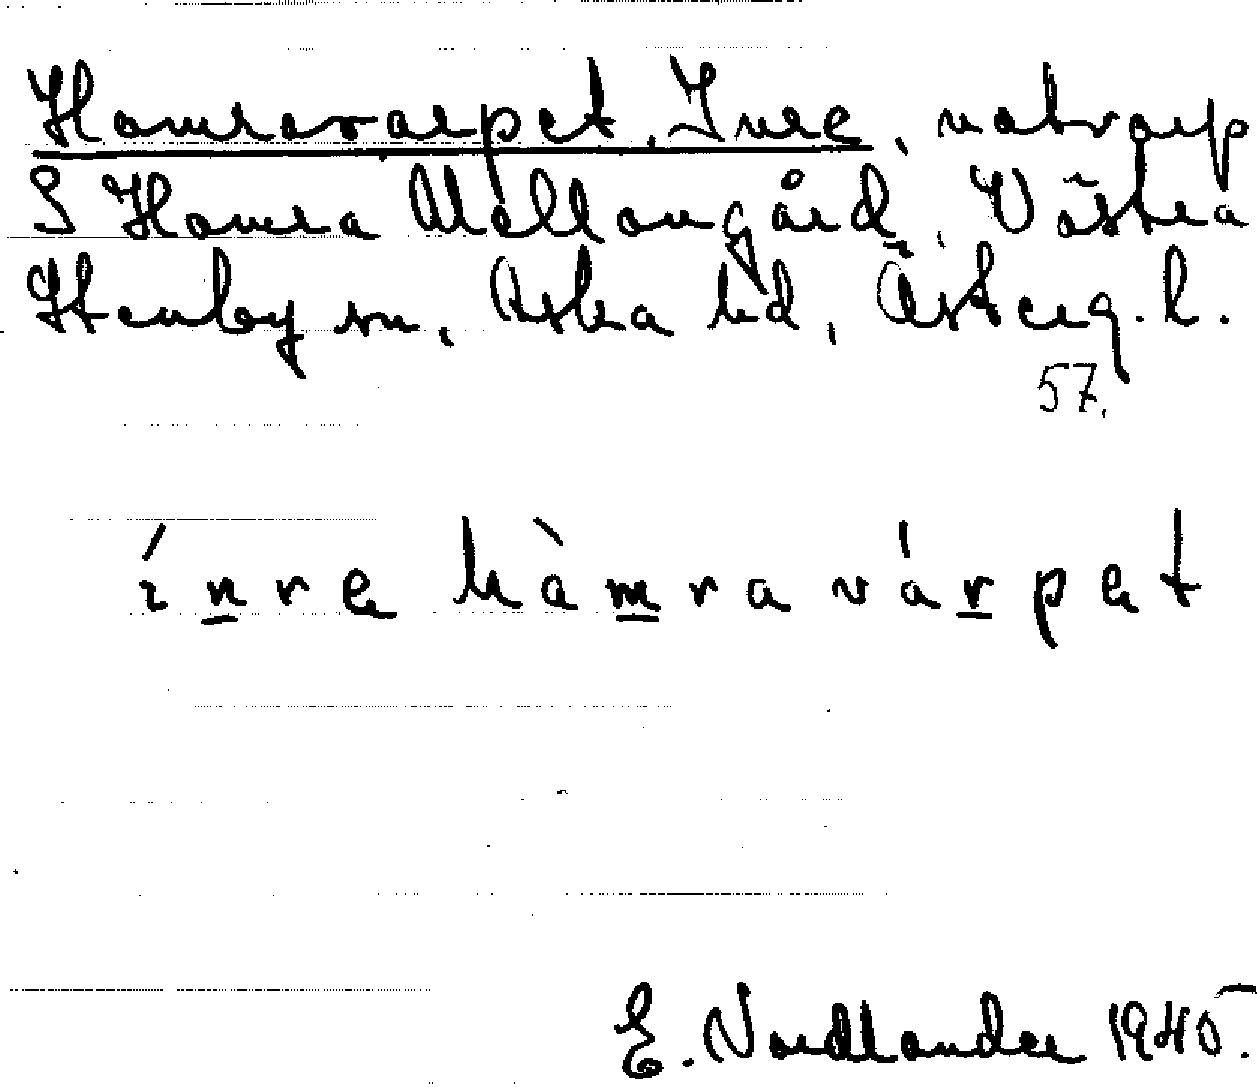 Hamravarpet, Inre, notvarp
S Hamra Mellangård, Västra
Stenby sn, Aska hd, Österg. l.
57.
ínre hàmravárpet
E. Nordlander 1945.